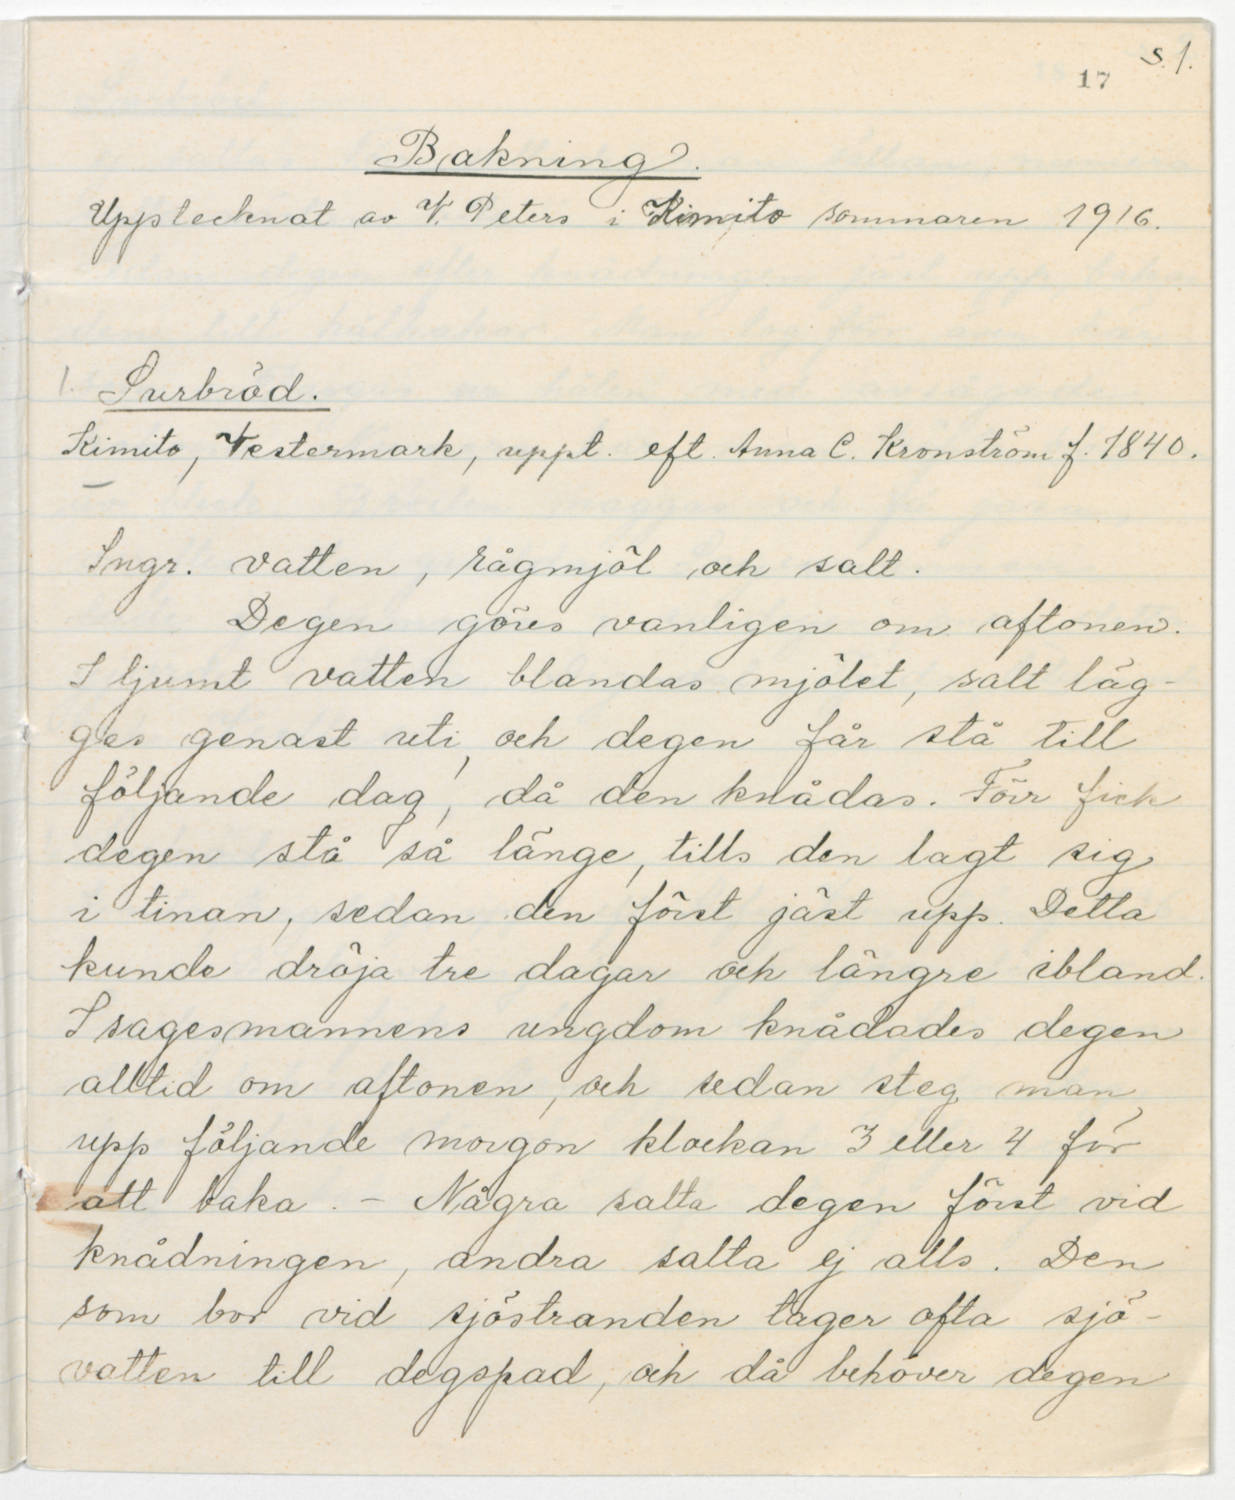 s. 1.
17
Bakning.
Upptecknat av V. Peters i Kimito sommaren 1916.
1. Surbröd.
Kimito, Vestermark, uppt. eft. Anna C. Kronström f. 1840.
Ingr. vatten, rågmjöl och salt.
Degen göres vanligen om aftonen.
I ljumt vatten blandas mjölet, salt läg-
ges genast uti, och degen får stå till
följande dag, då den knådas. Förr fick
degen stå så länge, tills den lagt sig
i tinan, sedan den först jäst upp. Detta
kunde dröja tre dagar och längre ibland.
I sagesmannens ungdom knådades degen
alltid om aftonen, och sedan steg man
upp följande morgon klockan 3 eller 4 för
att baka. - Några salta degen först vid
knådningen, andra salta ej alls. Den
som bor vid sjöstranden tager ofta sjö-
vatten till degspad, och då behöver degen